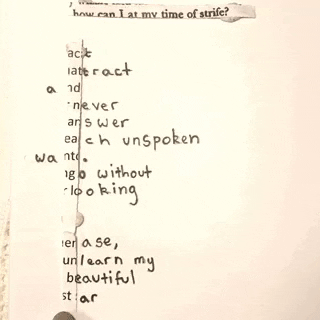 how can I at my time of strife?
act
and
never
answer
each unspoken
go without
looking
ease,
unlearn my
beautiful
star